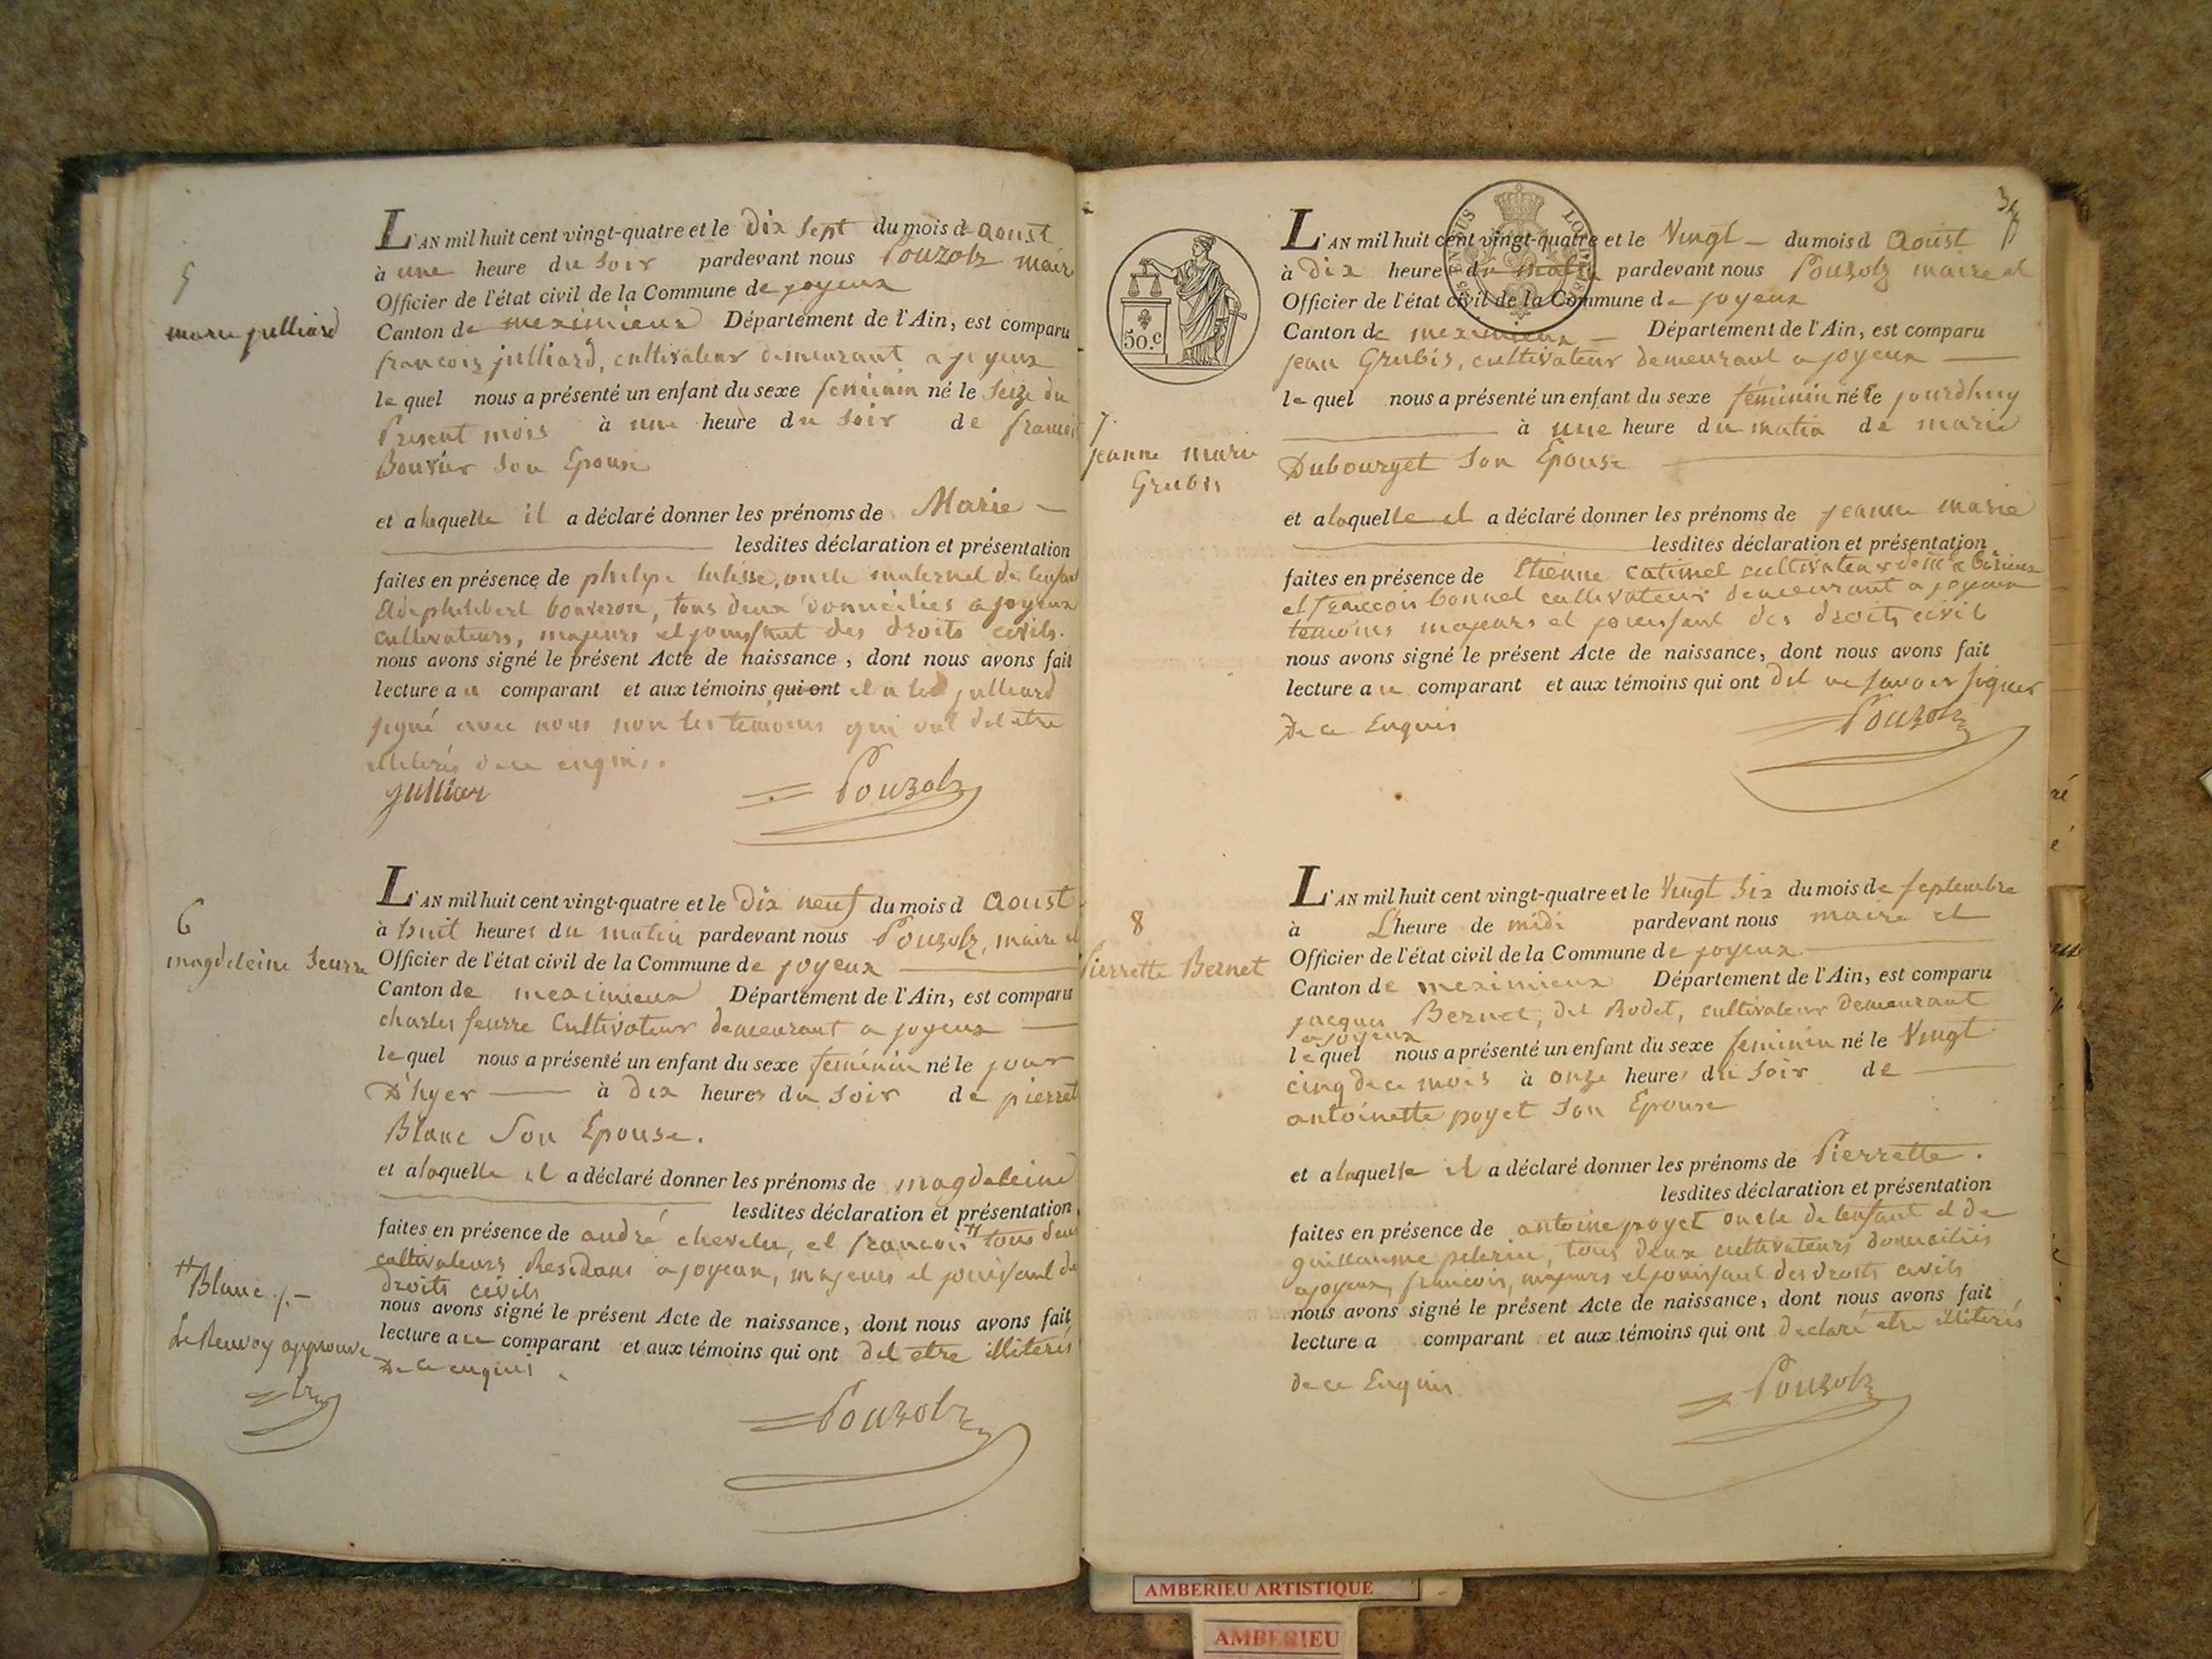 5
marie julliard
L'AN mil huit cent vingt-quatre et le dix sept du mois d aoust
à une heure du soir pardevant nous Pouzolz maire
Officier de l'état civil de la Commune de joyeux
Canton de meximieux Département de l'Ain, est comparu
francois julliard, cultivateur demeurant a joyeux
le quel nous a présenté un enfant du sexe feminin né le seize du
Present mois à une heure du soir de francoise
Bouvier son Epouse
et a laquelle il a déclaré donner les prénoms de Marie
lesdites déclaration et présentation
faites en présence de oncle maternel de lenfant
et de philibert bouveron, tous deux domiciliés a joyeux
cultivateurs, majeurs et jouissant des droits civils.
nous avons signé le présent Acte de naissance, dont nous avons fait
lecture a u comparant et aux témoins qui ont et a led julliard
signé avec nous non les temoins qui ont dit etre
illiterés de ce enquis.
julliar
Pouzolz
6
magdeleine Seurre
L'AN mil huit cent vingt-quatre et le dix neuf du mois d aoust
à huit heures du matin pardevant nous Pouzolz, maire et
Officier de l'état civil de la Commune de joyeux
Canton de meximieux Département de l'Ain, est comparu
charles seurre Cultivateur demeurant a joyeux
le quel nous a présenté un enfant du sexe feminin né le jour
D'hyer à dix heures du soir de pierrette
Blanc Son Epouse.
et a laquelle il a déclaré donner les prénoms de magdeleine
lesdites déclaration et présentation
faites en présence de andré chevelu, et francois # tous deux
cultivateurs Residans a joyeux, majeurs et jouissant des
droits civils
nous avons signé le présent Acte de naissance, dont nous avons fait
lecture a u comparant et aux témoins qui ont dit etre illiterés
De ce enquis.
# Blanc
Le Renvoy approuvé
Pouzolz
3
50.c
L'AN mil huit cent vingt-quatre et le Vingt du mois d Aoust
à Dix heures du matin pardevant nous Pouzolz maire et
Officier de l'état civil de la Commune de joyeux
Canton de meximieux Département de l'Ain, est comparu
jean Grubis, cultivateur demeurant a joyeux
le quel nous a présenté un enfant du sexe féminin né le jourdhuy
7.
à une heure du matin de marie
jeanne marie
Grubis
Dubourget son Epouse
et a laquelle il a déclaré donner les prénoms de jeanne marie
lesdites déclaration et présentation
faites en présence de Etienne catimel cultivateur demt a
et francois bonnel cultivateur demeurant a joyeux
temoins majeurs et jouissant des droits civils
nous avons signé le présent Acte de naissance, dont nous avons fait
lecture a u comparant et aux témoins qui ont dit ne savoir signer
De ce Enquis
Pouzolz
8
Pierrette Bernet
L'AN mil huit cent vingt-quatre et le Vingt six du mois de septembre
à L'heure de midi pardevant nous maire et
Officier de l'état civil de la Commune de joyeux
Canton de meximieux Département de l'Ain, est comparu
jacques Bernet, dit Rodet, cultivateur demeurant
a joyeux
le quel nous a présenté un enfant du sexe feminin né le Vingt
cinq de ce mois à onze heures du soir de
antoinette poyet son Epouse
et a laquelle il a déclaré donner les prénoms de Pierrette.
lesdites déclaration et présentation
faites en présence de antoine poyet oncle de lenfant et de
guillaume pelerin, tous deux cultivateurs domiciliés
a joyeux, francois, majeurs et jouissant des droits civils
nous avons signé le présent Acte de naissance, dont nous avons fait
lecture a comparant et aux témoins qui ont declaré etre illiterés
de ce Enquis
Pouzolz
AMBERIEU ARTISTIQUE
AMBERIEU